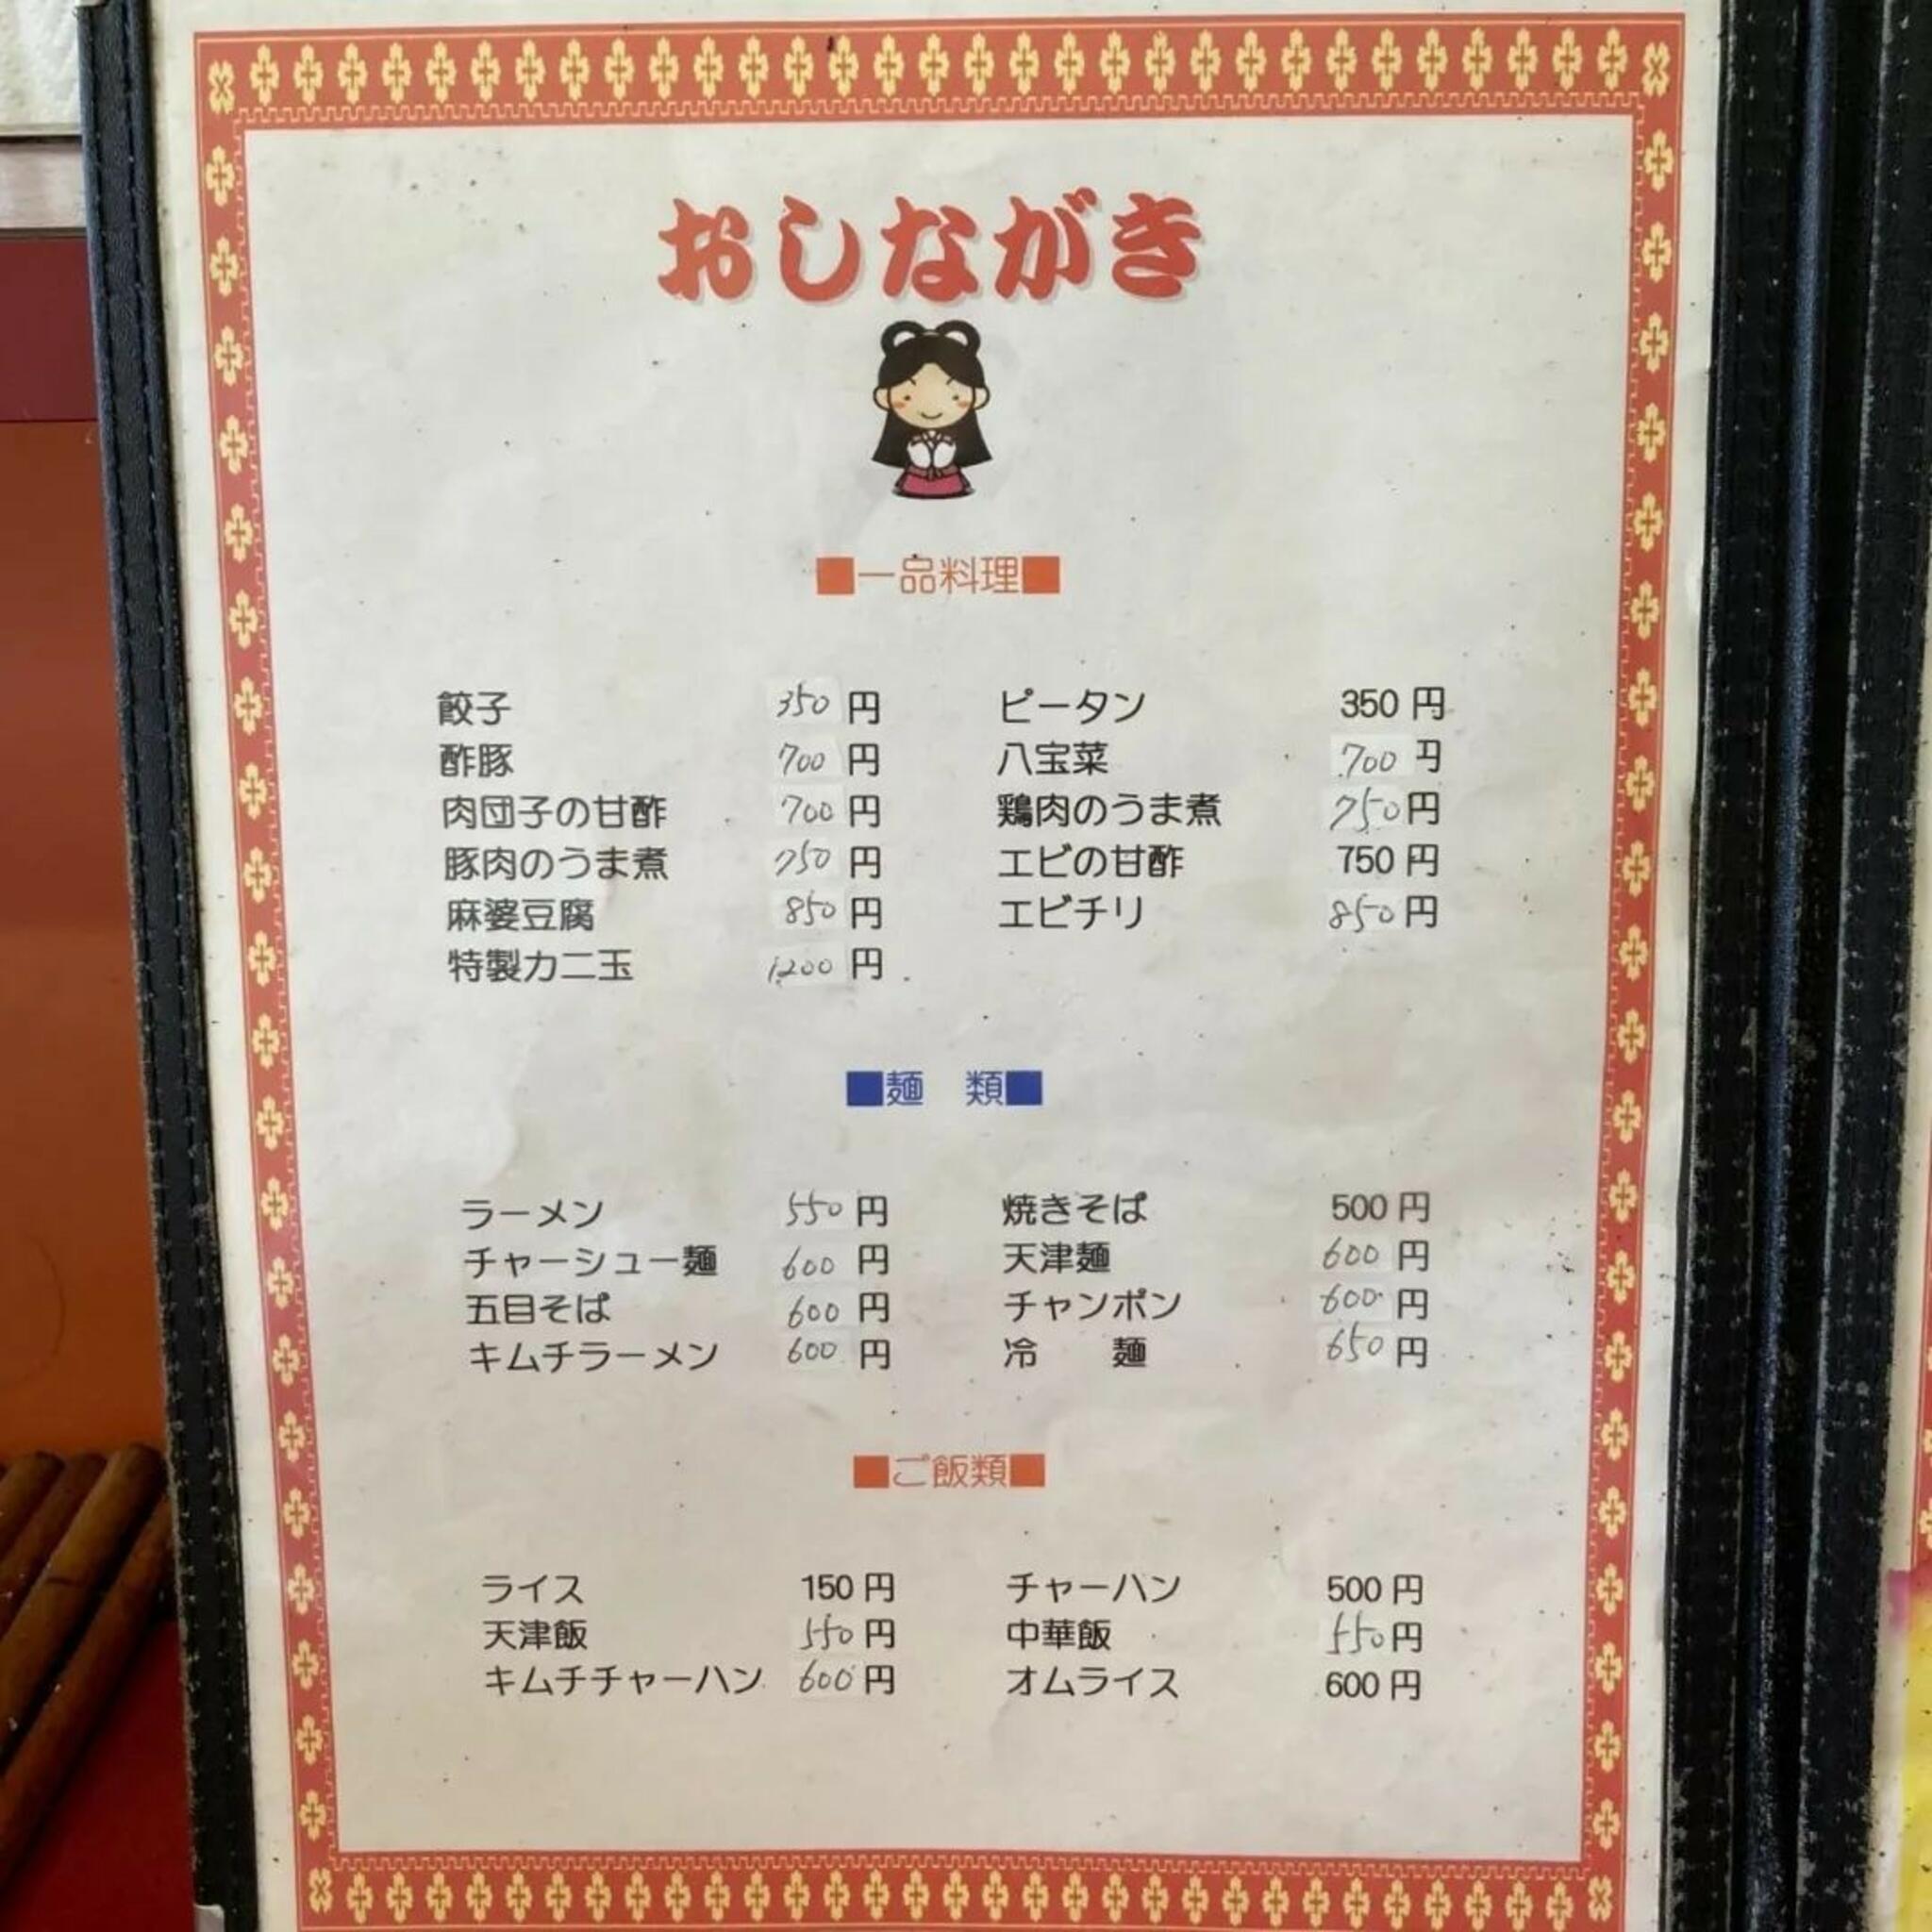 おしながき
■一品料理■
餃子 350 円 ピータン 350 円
酢豚 700 円 八宝菜 700 円
肉団子の甘酢 700 円 鶏肉のうま煮 750 円
豚肉のうま煮 750 円 エビの甘酢 750 円
麻婆豆腐 850 円 エビチリ 850 円
特製カニ玉 1200 円
■麺 類■
ラーメン 550 円 焼きそば 500 円
チャーシュー麺 600 円 天津麺 600 円
五目そば 600 円 チャンポン 600 円
キムチラーメン 600 円 冷 麺 650 円
■ご飯類■
ライス 150 円 チャーハン 500 円
天津飯 550 円 中華飯 550 円
キムチチャーハン 600 円 オムライス 600 円